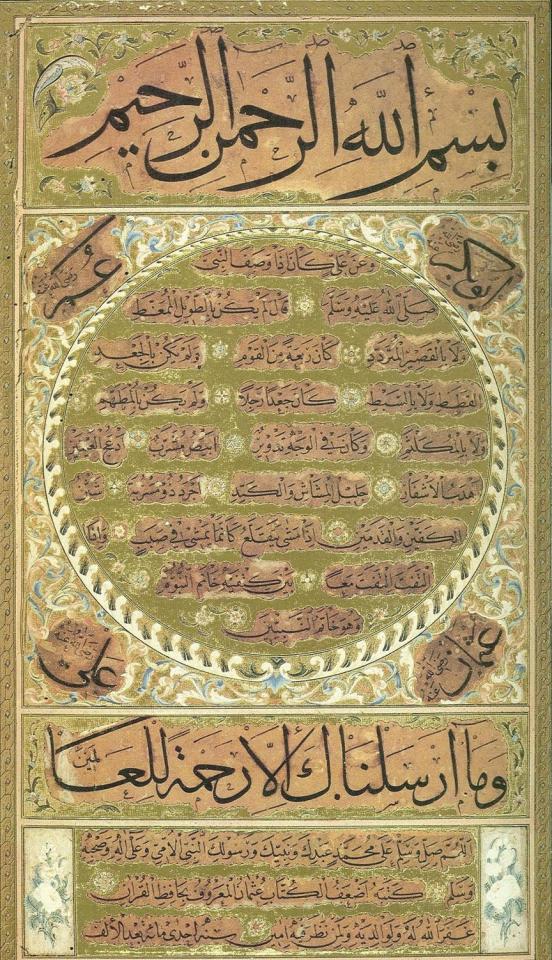 بسم الله الرحمن الرحيم
ابوبكر
رضي الله عنه
عمر
رضي الله عنه
وعن علي كان اذا وصف النبي
صلى الله عليه وسلم قال لم يكن بالطويل الممغط
ولا بالقصير المتردد كان ربعة من القوم ولم يكن بالجعد
القطط ولا بالسبط كان جعدا رجلا ولم يكن بالمطهم
ولا بالمكلثم وكان في الوجه تدوير ابيض مشرب ادعج العينين
اهدب الاشفار جليل المشاش والكتد اجرد ذو مسربة شثن
الكفين والقدمين اذا مشى يتقلع كانما يمشي في صبب واذا
التفت التفت معا بين كتفيه خاتم النبوة
وهو خاتم النبيين
عثمان
رضي الله عنه
علي
رضي الله عنه
وما ارسلناك الا رحمة للعالمين
اللهم صل وسلم على محمد عبدك ونبيك ورسولك النبي الامي وعلى آله وصحبه
وسلم كتبه اضعف الكتاب عثمان المعروف بحافظ القرآن
غفر الله له ولوالديه ولمن نظر فيه آمين سنة احدى مائة بعد الالف